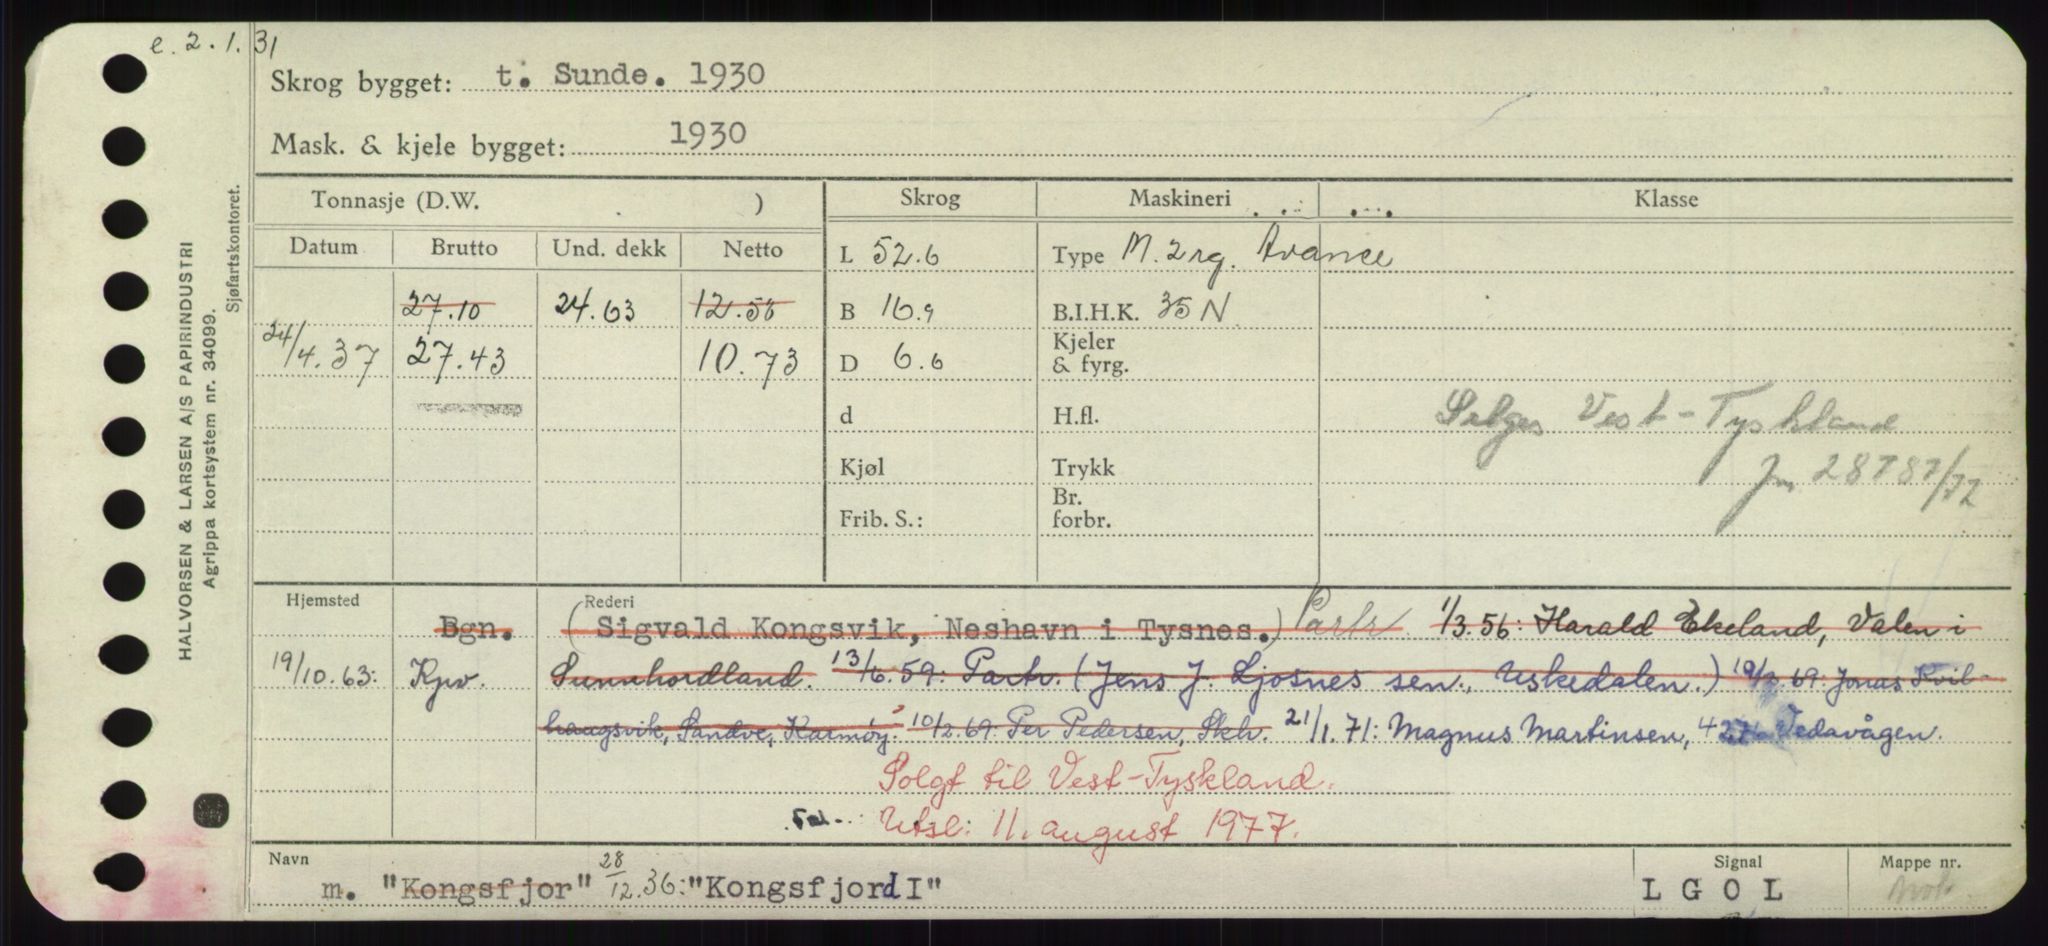 e. 2.1.31
Skrog bygget: t. Sunde. 1930
Mask. & kjele bygget: 1930
HALVORSEN & LARSEN A/S PAPIRINDUSTRI
Agrippa kortsystem nr. 34099.
Sjøfartskontoret.
Tonnasje (D.W. ) Skrog Maskineri Klasse
Datum Brutto Und. dekk Netto L 52.6 Type M. 2 rg. Avance
27.10 24.63 12.58 B 16.9 B.I.H.K. 35 N
24/4.37 27.43 10.73 D 6.6 Kjeler & fyrg.
d H.fl. Selges Vest-Tyskland
Kjøl Trykk 28787/72
Frib. S.: Br. forbr.
Hjemsted Rederi
Bgn. (Sigvald Kongsvik, Neshavn i Tysnes.) Partr 1/3.56: Harald Ekeland, Valen i
19/10.63: Kpv. Sunnhordland. 13/6.59: Partr. (Jens J. Ljosnes sen., Uskedalen.) 69: Jonas Kvil-
haugsvik, Sandve, Karmøy. 10/2.69: Per Pedersen, Skh. 21/1.71: Magnus Martinsen, Vedavågen.
Solgt til Vest-Tyskland.
Utsl: 11. august 1977.
Navn Signal Mappe nr.
m. "Kongsfjor" 28/12.36: "Kongsfjord I" L G O L